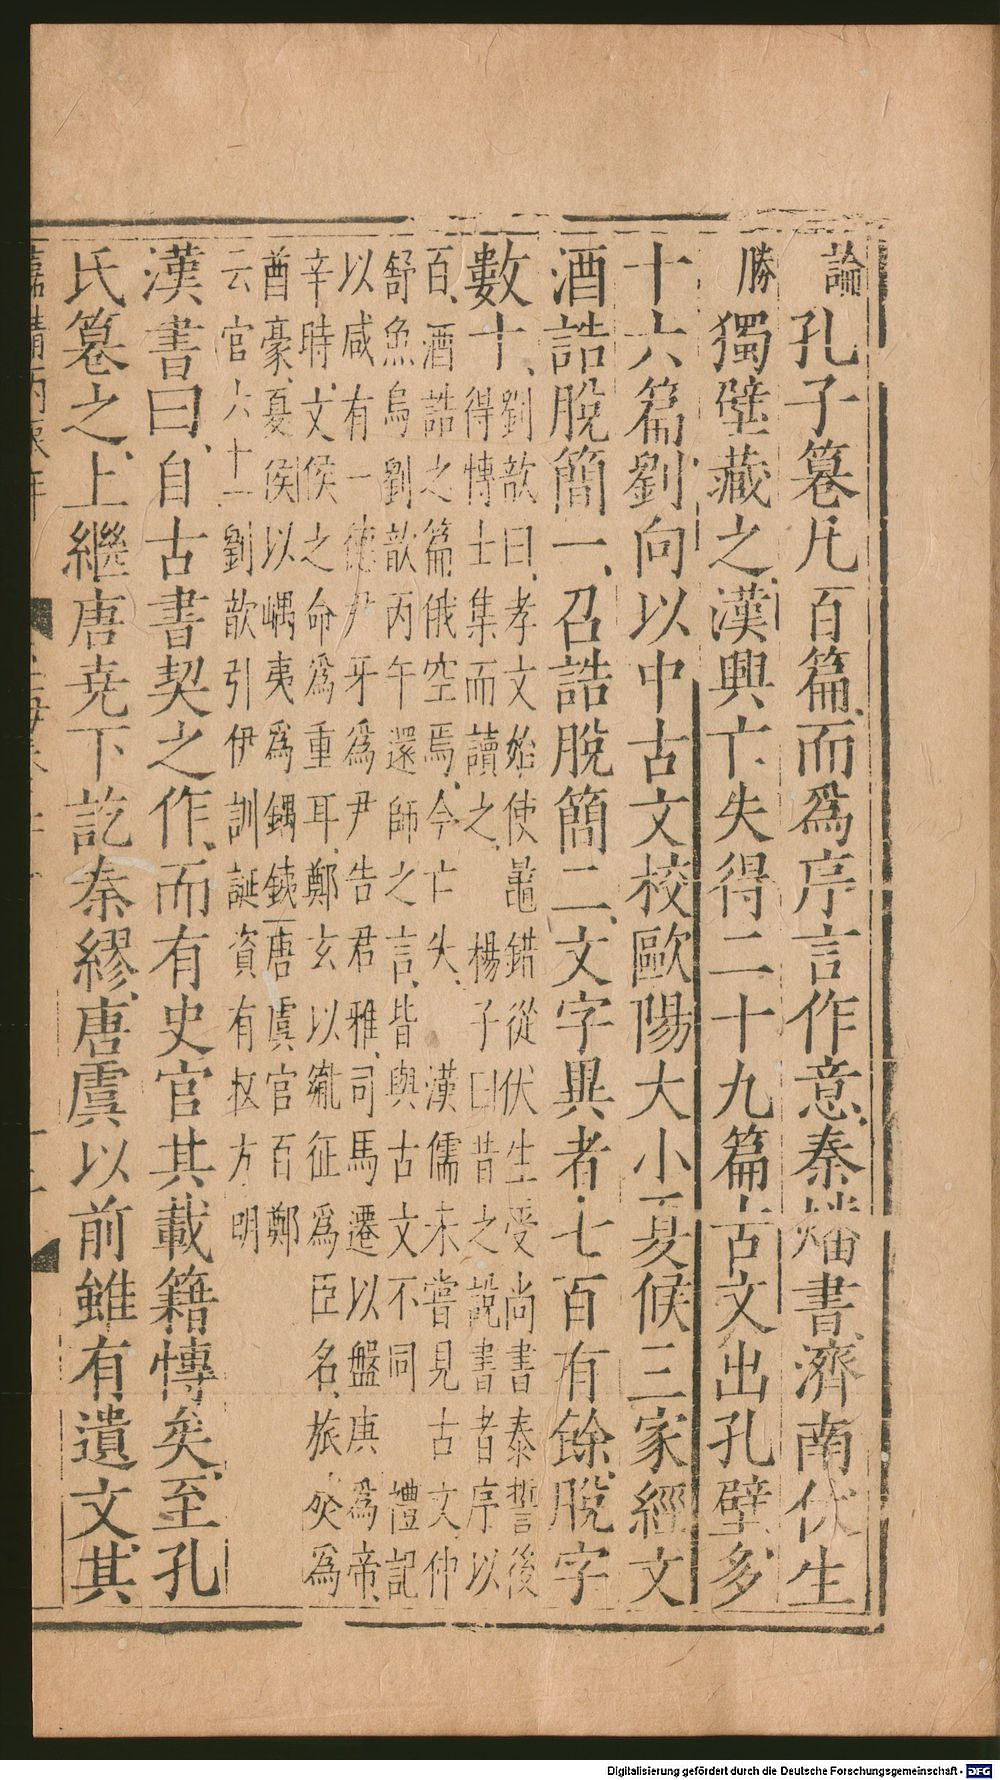 論孔子篹凡百篇而爲序言作意秦燔書濟南伏生
勝獨壁藏之漢興亡失得二十九篇古文出孔壁多
十六篇劉向以中古文校歐陽大小夏侯三家經文
酒誥脫簡一召誥脫簡二文字異者七百有餘脫字
數十劉歆曰孝文始使鼂錯從伏生受尚書泰誓後
得博士集而讀之 楊子曰昔之說書者序以
百酒誥之篇俄空焉今亡失 漢儒未嘗見古文仲
舒魚烏劉歆丙午還師之言皆與古文不同 禮記
以咸有一德尹牙爲尹告君雅司馬遷以盤庚爲帝
辛時文侯之命爲重耳鄭玄以胤征爲臣名旅獒爲
酋豪夏侯以嵎夷爲鐊銕唐虞官百鄭
云官六十一劉歆引伊訓誕資有牧方明
漢書曰自古書契之作而有史官其載籍博矣至孔
氏篹之上繼唐堯下訖秦繆唐虞以前雖有遺文其
Digitalisierung gefördert durch die Deutsche Forschungsgemeinschaft - DFG